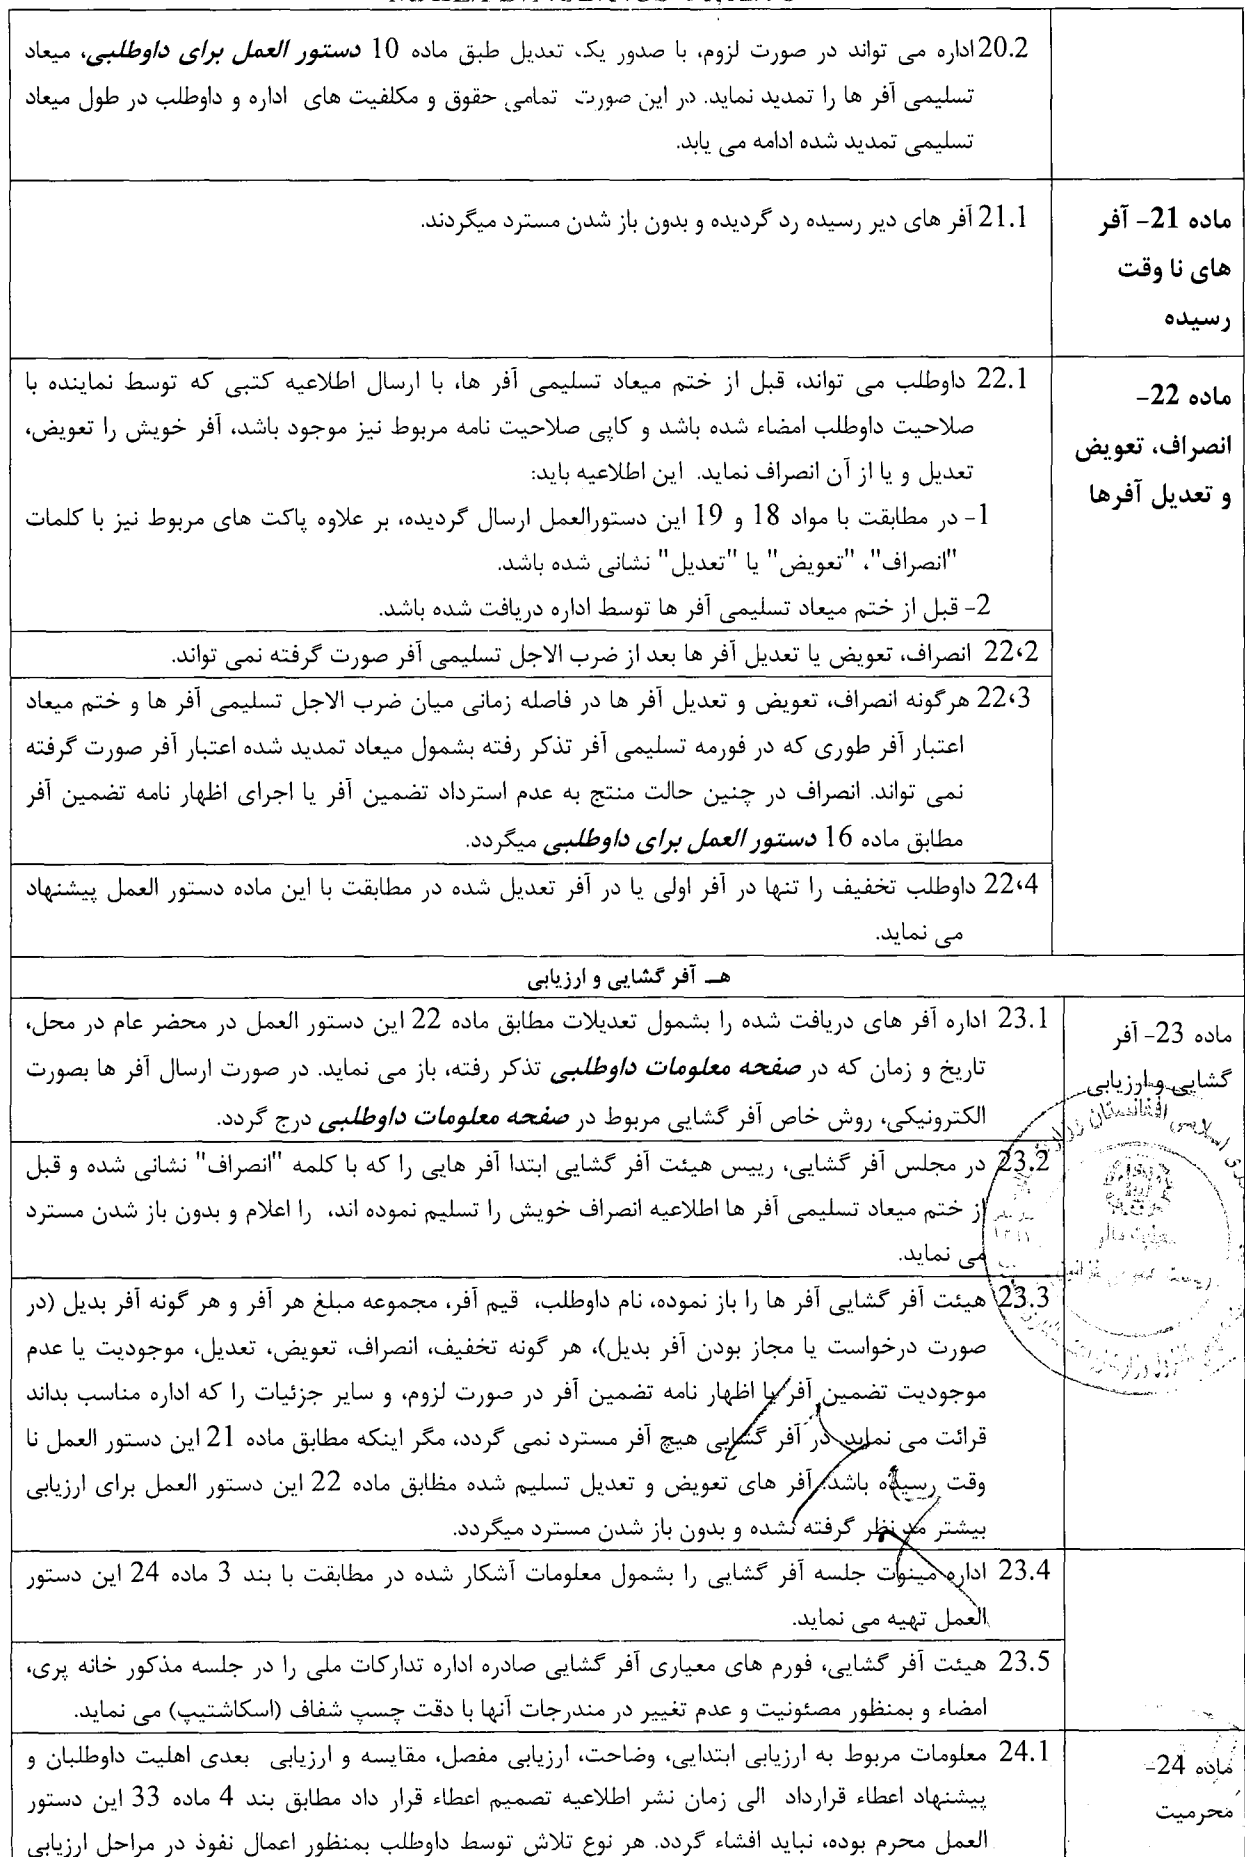 20.2 اداره می تواند در صورت لزوم، با صدور یک تعدیل طبق ماده 10 دستور العمل برای داوطلبی، میعاد
تسلیمی آفر ها را تمدید نماید. در این صورت تمامی حقوق و مکلفیت های اداره و داوطلب در طول میعاد
تسلیمی تمدید شده ادامه می یابد.
ماده 21- آفر
های نا وقت
رسیده
21.1 آفر های دیر رسیده رد گردیده و بدون باز شدن مسترد میگردند.
ماده 22-
انصراف، تعویض
و تعدیل آفرها
22.1 داوطلب می تواند، قبل از ختم میعاد تسلیمی آفر ها، با ارسال اطلاعیه کتبی که توسط نماینده با
صلاحیت داوطلب امضاء شده باشد و کاپی صلاحیت نامه مربوط نیز موجود باشد، آفر خویش را تعویض،
تعدیل و یا از آن انصراف نماید. این اطلاعیه باید:
1- در مطابقت با مواد 18 و 19 این دستورالعمل ارسال گردیده، بر علاوه پاکت های مربوط نیز با کلمات
"انصراف"، "تعویض" یا "تعدیل" نشانی شده باشد.
2- قبل از ختم میعاد تسلیمی آفر ها توسط اداره دریافت شده باشد.
22،2 انصراف، تعویض یا تعدیل آفر ها بعد از ضرب الاجل تسلیمی آفر صورت گرفته نمی تواند.
22،3 هرگونه انصراف، تعویض و تعدیل آفر ها در فاصله زمانی میان ضرب الاجل تسلیمی آفر ها و ختم میعاد
اعتبار آفر طوری که در فورمه تسلیمی آفر تذکر رفته بشمول میعاد تمدید شده اعتبار آفر صورت گرفته
نمی تواند. انصراف در چنین حالت منتج به عدم استرداد تضمین آفر یا اجرای اظهار نامه تضمین آفر
مطابق ماده 16 دستور العمل برای داوطلبی میگردد.
22،4 داوطلب تخفیف را تنها در آفر اولی یا در آفر تعدیل شده در مطابقت با این ماده دستور العمل پیشنهاد
می نماید.
هـ آفر گشایی و ارزیابی
ماده 23- آفر
گشایی و ارزیابی
23.1 اداره آفر های دریافت شده را بشمول تعدیلات مطابق ماده 22 این دستور العمل در محضر عام در محل،
تاریخ و زمان که در صفحه معلومات داوطلبی تذکر رفته، باز می نماید. در صورت ارسال آفر ها بصورت
الکترونیکی، روش خاص آفر گشایی مربوط در صفحه معلومات داوطلبی درج گردد.
23.2 در مجلس آفر گشایی، رییس هیئت آفر گشایی ابتدا آفر هایی را که با کلمه "انصراف" نشانی شده و قبل
از ختم میعاد تسلیمی آفر ها اطلاعیه انصراف خویش را تسلیم نموده اند، را اعلام و بدون باز شدن مسترد
می نماید.
23.3 هیئت آفر گشایی آفر ها را باز نموده، نام داوطلب، قیم آفر، مجموعه مبلغ هر آفر و هر گونه آفر بدیل (در
صورت درخواست یا مجاز بودن آفر بدیل)، هر گونه تخفیف، انصراف، تعویض، تعدیل، موجودیت یا عدم
موجودیت تضمین آفر یا اظهار نامه تضمین آفر در صورت لزوم، و سایر جزئیات را که اداره مناسب بداند
قرائت می نماید. در آفر گشایی هیچ آفر مسترد نمی گردد، مگر اینکه مطابق ماده 21 این دستور العمل نا
وقت رسیده باشد. آفر های تعویض و تعدیل تسلیم شده مظابق ماده 22 این دستور العمل برای ارزیابی
بیشتر مد نظر گرفته نشده و بدون باز شدن مسترد میگردد.
23.4 اداره مینوت جلسه آفر گشایی را بشمول معلومات آشکار شده در مطابقت با بند 3 ماده 24 این دستور
العمل تهیه می نماید.
23.5 هیئت آفر گشایی، فورم های معیاری آفر گشایی صادره اداره تدارکات ملی را در جلسه مذکور خانه پری،
امضاء و بمنظور مصئونیت و عدم تغییر در مندرجات آنها با دقت چسپ شفاف (اسکاشتیپ) می نماید.
ماده 24-
محرمیت
24.1 معلومات مربوط به ارزیابی ابتدایی، وضاحت، ارزیابی مفصل، مقایسه و ارزیابی بعدی اهلیت داوطلبان و
پیشنهاد اعطاء قرارداد الی زمان نشر اطلاعیه تصمیم اعطاء قرار داد مطابق بند 4 ماده 33 این دستور
العمل محرم بوده، نباید افشاء گردد. هر نوع تلاش توسط داوطلب بمنظور اعمال نفوذ در مراحل ارزیابی